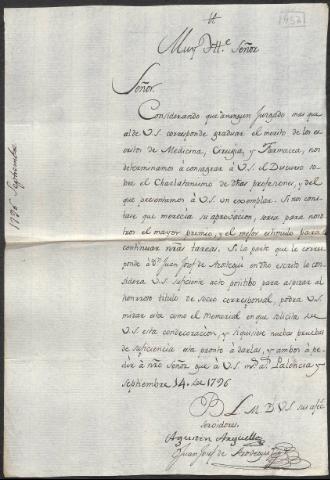 1952
Muy Iltᵉ Señor
Señor.
Considerando que à ningun Juzgado mas que
al de V.S. corresponde graduar el merito de los es-
critos de Medicina, Cirugia, y Farmacia, nos
determinamos à consagrar à V.S. el Discurso so-
bre el Charlatanismo de dhas profesiones, y del
que presentamos à V.S. un exemplar. Si nos cons-
tase que merecia su aprobacion, seria para noso-
tros el mayor premio, y el mejor estimulo para
continuar nrãs tareas. Si la parte que le corres-
ponde à Dⁿ Juan Josef de Arotegui en dho escrito la con-
sidera V.S. suficiente acto positibo para aspirar al
honroso titulo de socio corresponsal, podrà V.S.
mirar esta como el Memorial en que solicita de
V.S. esta condecoracion, y si quisiese nuebas pruebas
de suficiencia esta pronto à darlas, y ambos à pe-
dir à nrõ Señor que à V.S. mˢ aˢ Palencia y
Septiembre 14. de 1796
B L M. D V S sus afᵗᵒˢ
servidores
Agustin Arguello
Juan Josef de Arotegui
1796 Septiembre